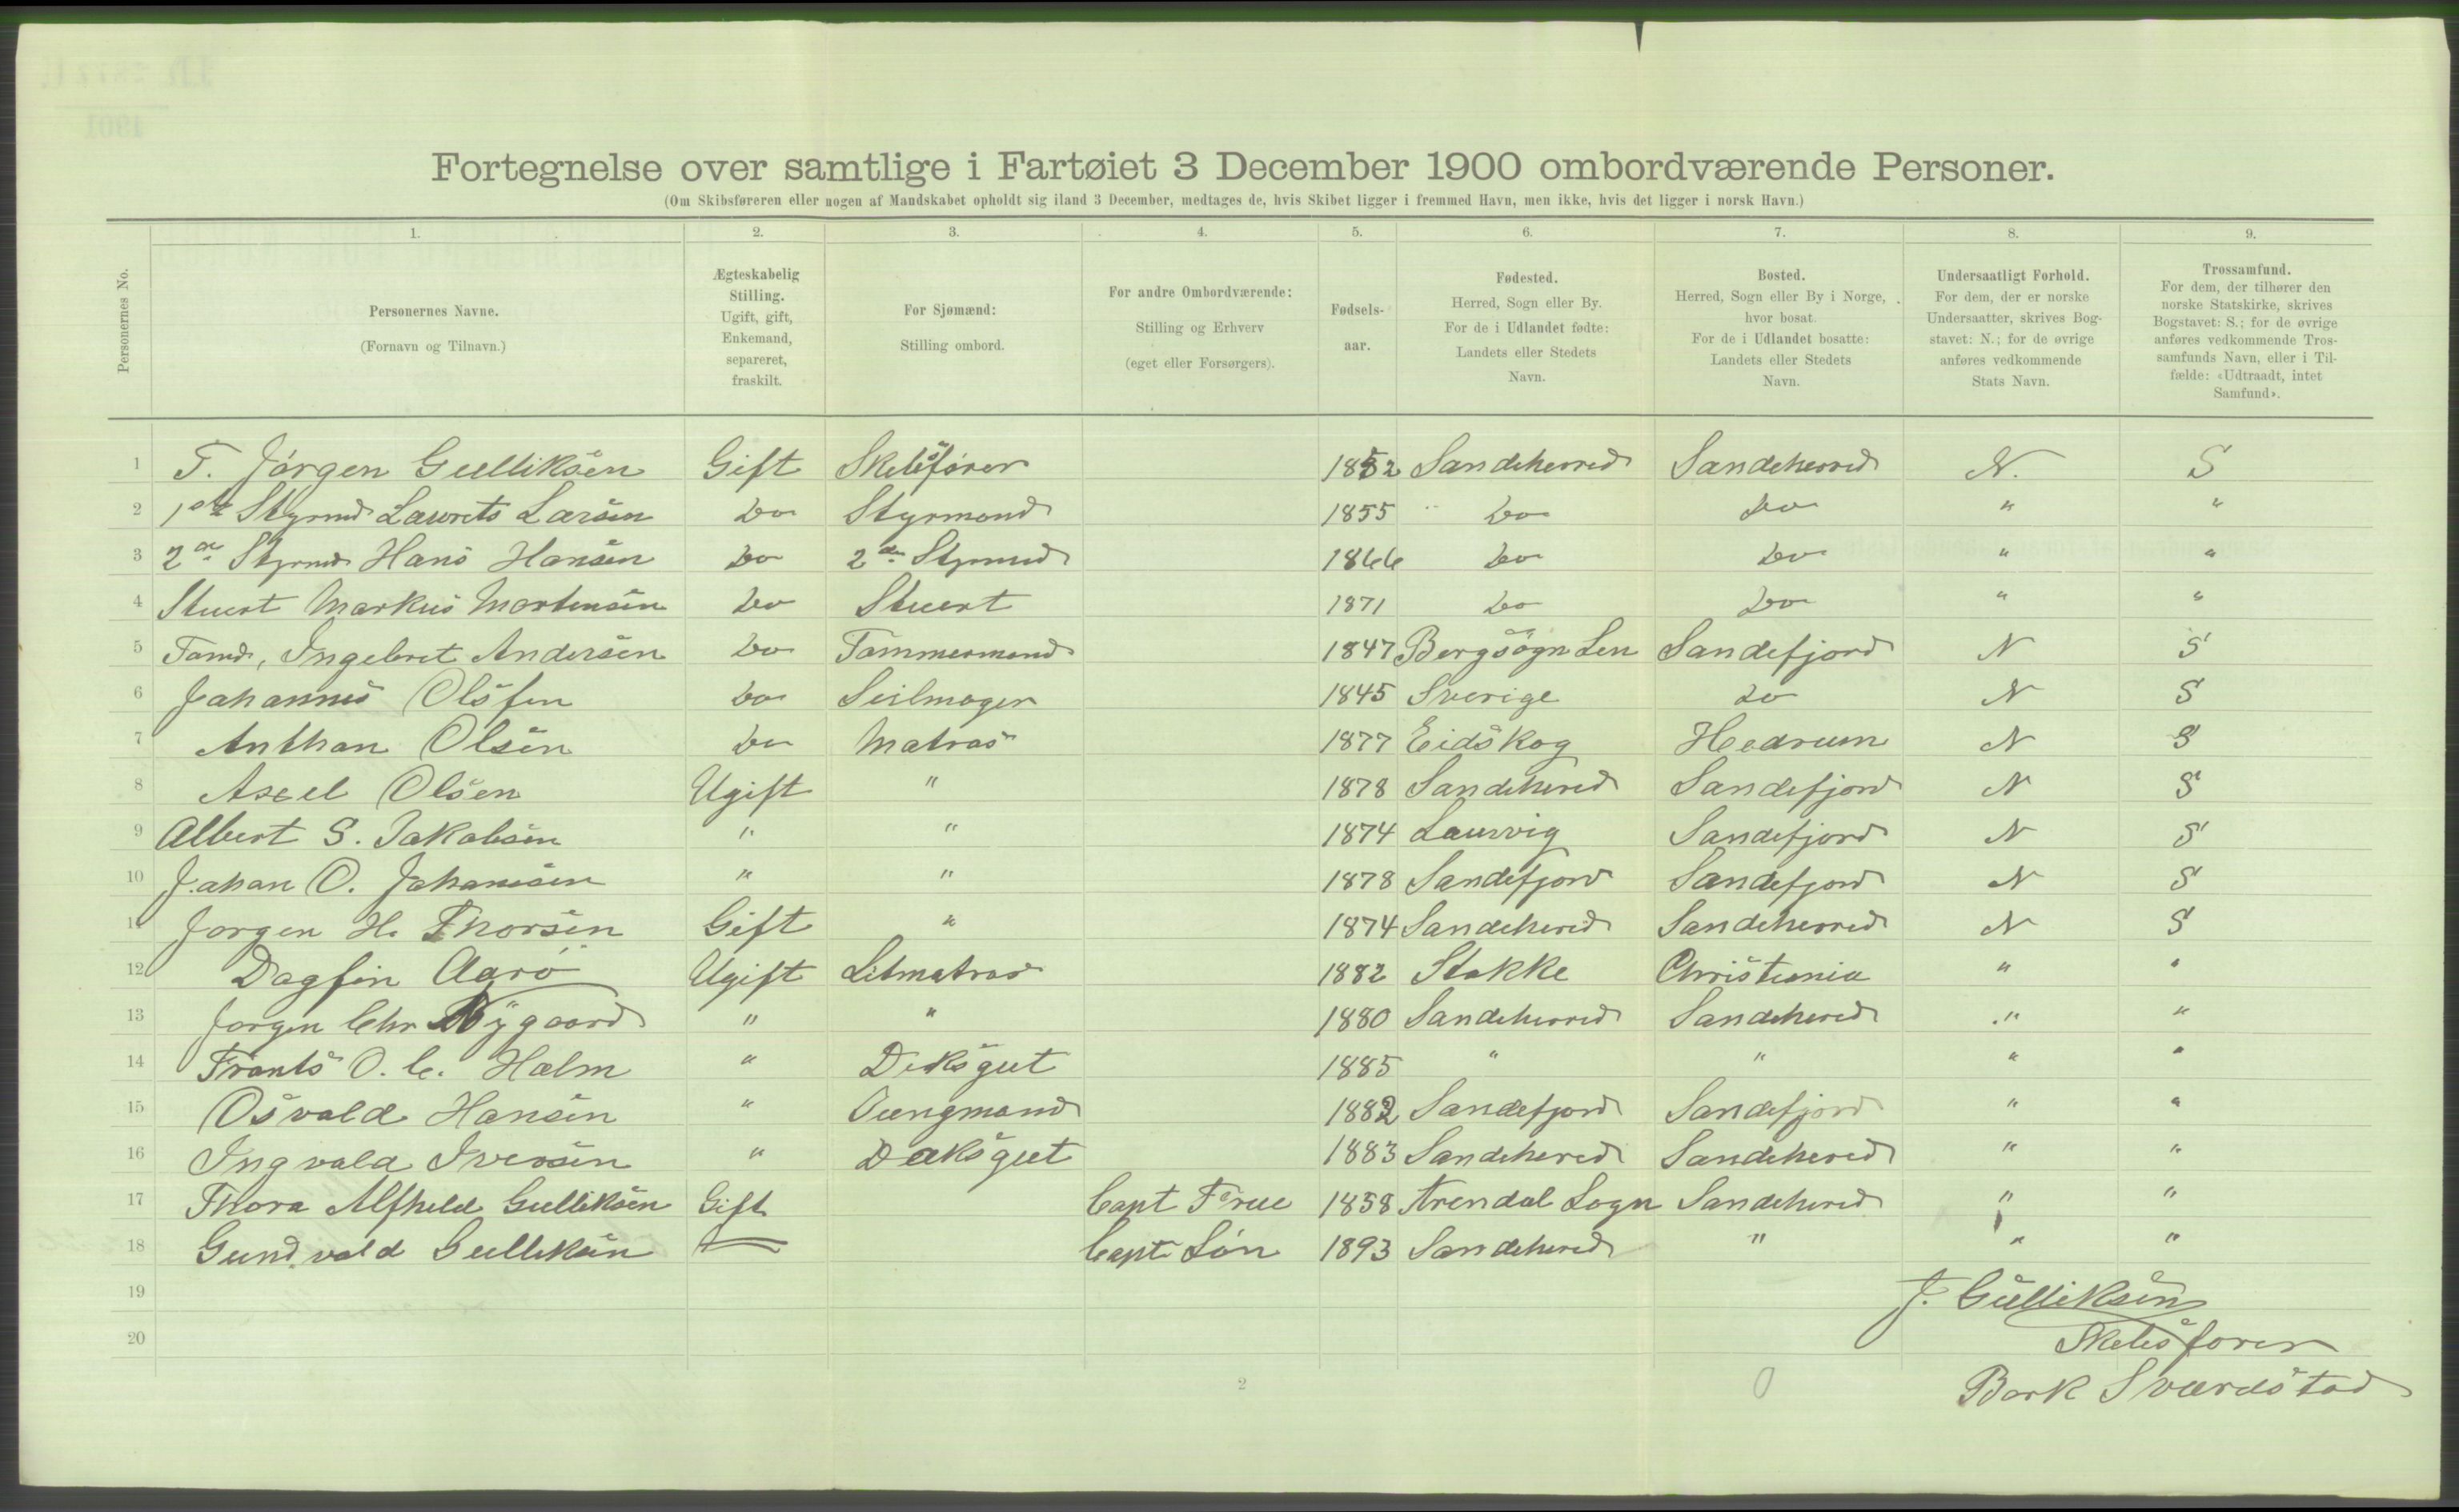 Fortegnelse over samtlige i Fartøiet 3 December 1900 ombordværende Personer.
(Om Skibsføreren eller nogen af Mandskabet opholdt sig iland 3 December, medtages de, hvis Skibet ligger i fremmed Havn, men ikke, hvis det ligger i norsk Havn.)
1. 2. 3. 4. 5. 6. 7. 8. 9.
Personernes No.
Personernes Navne.
(Fornavn og Tilnavn.)
Ægteskabelig
Stilling.
Ugift, gift,
Enkemand,
separeret,
fraskilt.
For Sjømænd:
Stilling ombord.
For andre Ombordværende:
Stilling og Erhverv
(eget eller Forsørgers).
Fødsels-
aar.
Fødested.
Herred, Sogn eller By.
For de i Udlandet fødte:
Landets eller Stedets
Navn.
Bosted.
Herred, Sogn eller By i Norge,
hvor bosat.
For de i Udlandet bosatte:
Landets eller Stedets
Navn.
Undersaatligt Forhold.
For dem, der er norske
Undersaatter, skrives Bog-
stavet: N.; for de øvrige
anføres vedkommende
Stats Navn.
Trossamfund.
For dem, der tilhører den
norske Statskirke, skrives
Bogstavet: S.; for de øvrige
anføres vedkommende Tros-
samfunds Navn, eller i Til-
fælde: «Udtraadt, intet
Samfund».
1 T. Jørgen Gulliksen Gift Skibsfører 1852 Sandeherred Sandeherred N. S
2 1ste Styrmd Laurits Larsen Do Styrmand 1855 Do Do " "
3 2en Styrmd Hans Hansen Do 2den Styrmd 1866 Do Do " "
4 Stuert Markus Mortensen Do Stuert 1871 Do Do " "
5 Tømd, Ingebret Andersen Do Tømmermand 1847 Bergsogn Len Sandefjord N S
6 Johannes Olsfen Do Seilmager 1845 Sverige Do N S
7 Anthon Olsen Do Matros 1877 Eidskog Hedrum N S
8 Axel Olsen Ugift " 1878 Sandeherred Sandefjord N S
9 Albert S. Jakobsen " " 1874 Laurvig Sandefjord N S
10 Johan O. Johansen " " 1878 Sandefjord Sandefjord N S
11 Jørgen H. Thorsen Gift " 1874 Sandeherred Sandeherred N S
12 Dagfin Aarø Ugift Letmatros 1882 Stokke Christiania " "
13 Jørgen Chr Nygaard " " 1880 Sandeherred Sandeherred " "
14 Frants O. C. Holm " Deksgut 1885 " " " "
15 Osvald Hansen " Jungmand 1882 Sandefjord Sandefjord " "
16 Ingvald Iversen " Dæksgut 1883 Sandeherred Sandeherred " "
17 Thora Alfhild Gulliksen Gift Capt Frue 1858 Arendal Sogn Sandeherred " "
18 Gundvald Gulliksen Capt Søn 1893 Sandeherred " " "
19
J. Gulliksen
20
Skibsfører
2
Bark Sværdstad